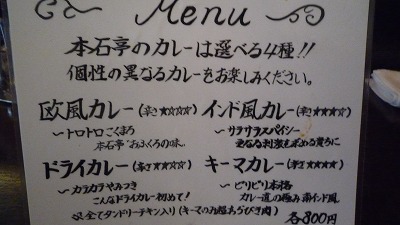 Menu
本石亭のカレーは選べる4種!!
個性の異なるカレーをお楽しみください。
欧風カレー(辛さ★☆☆☆)
〜トロトロこくまろ
本石亭"おふくろの味"
インド風カレー(辛さ★★★☆)
〜サラサラスパイシー
更なる刺激を求める貴方に
ドライカレー(辛さ★★☆☆)
〜カラカラやみつき
こんなドライカレー初めて!
キーマカレー(辛さ★★★★)
〜ピリピリ本格
カレー道の極み南インド風
全てタンドリーチキン入り(キーマのみ超あらびき肉)
各800円